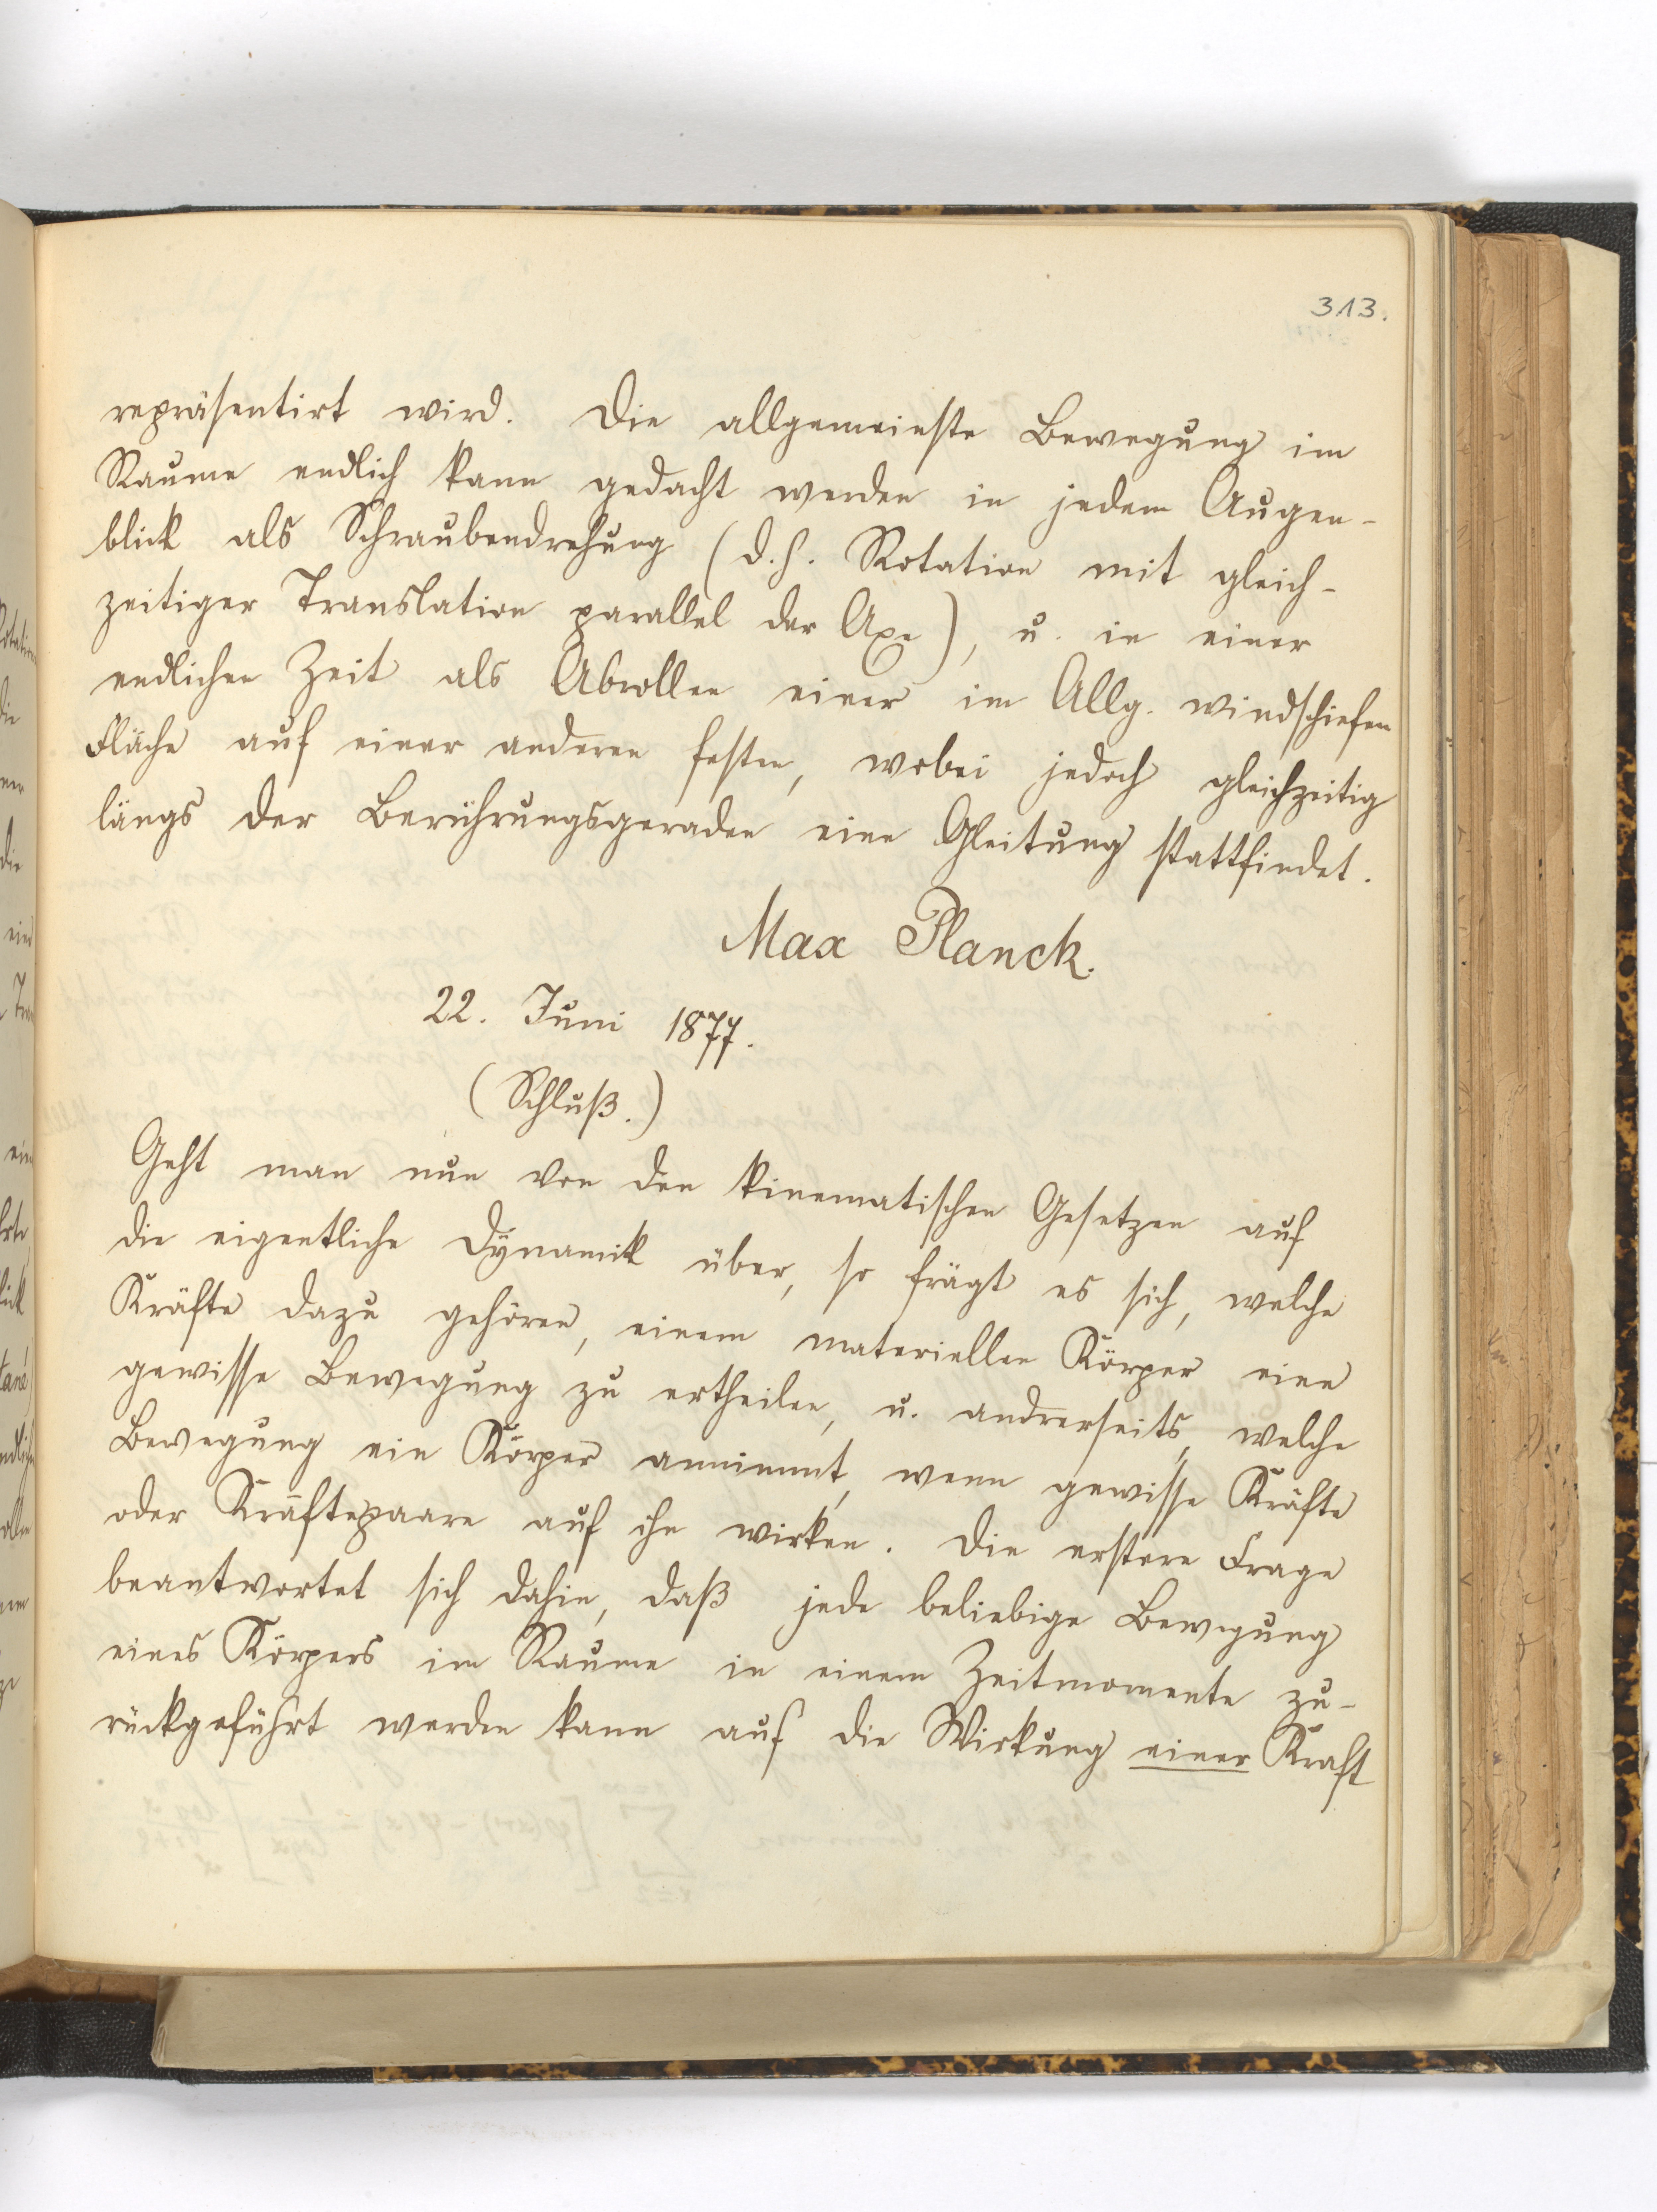 313.
repräsentirt wird. Die allgemeinste Bewegung im
Raume endlich kann gedacht werden in jedem Augen-
blick als Schraubendrehung (d. h. Rotation mit gleich-
zeitiger Translation parallel der Axe), u. in einer
endlichen Zeit als Abrollen einer im Allg. windschiefen
Fläche auf einer anderen festen, wobei jedoch gleichzeitig
längs der Berührungsgeraden eine Gleitung stattfindet.
Max Planck.
22. Juni 1877.
(Schluß.)
Geht man nun von den kinematischen Gesetzen auf
die eigentliche Dynamik über, so frägt es sich, welche
Kräfte dazu gehören, einem materiellen Körper eine
gewisse Bewegung zu ertheilen, u. andrerseits, welche
Bewegung ein Körper annimmt, wenn gewisse Kräfte
oder Kräftepaare auf ihn wirken. Die erstere Frage
beantwortet sich dahin, daß jede beliebige Bewegung
eines Körpers im Raume in einem Zeitmomente zu-
rückgeführt werden kann auf die Wirkung einer Kraft